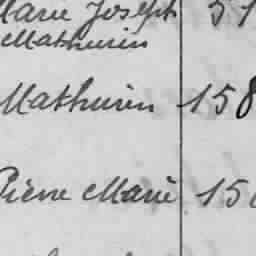 Marie Joseph 51
Mathurin
Mathurin 158
Pierre Marie 15